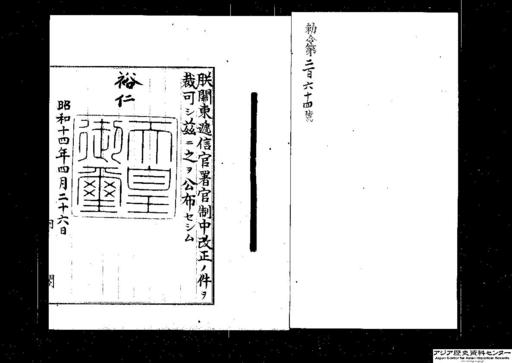 勅令第二百六十四號
朕關東遞信官署官制中改正ノ件ヲ
裁可シ茲ニ之ヲ公布セシム
裕仁
天皇
御璽
昭和十四年四月二十六日
内閣
アジア歴史資料センター
Japan Center for Asian Historical Records